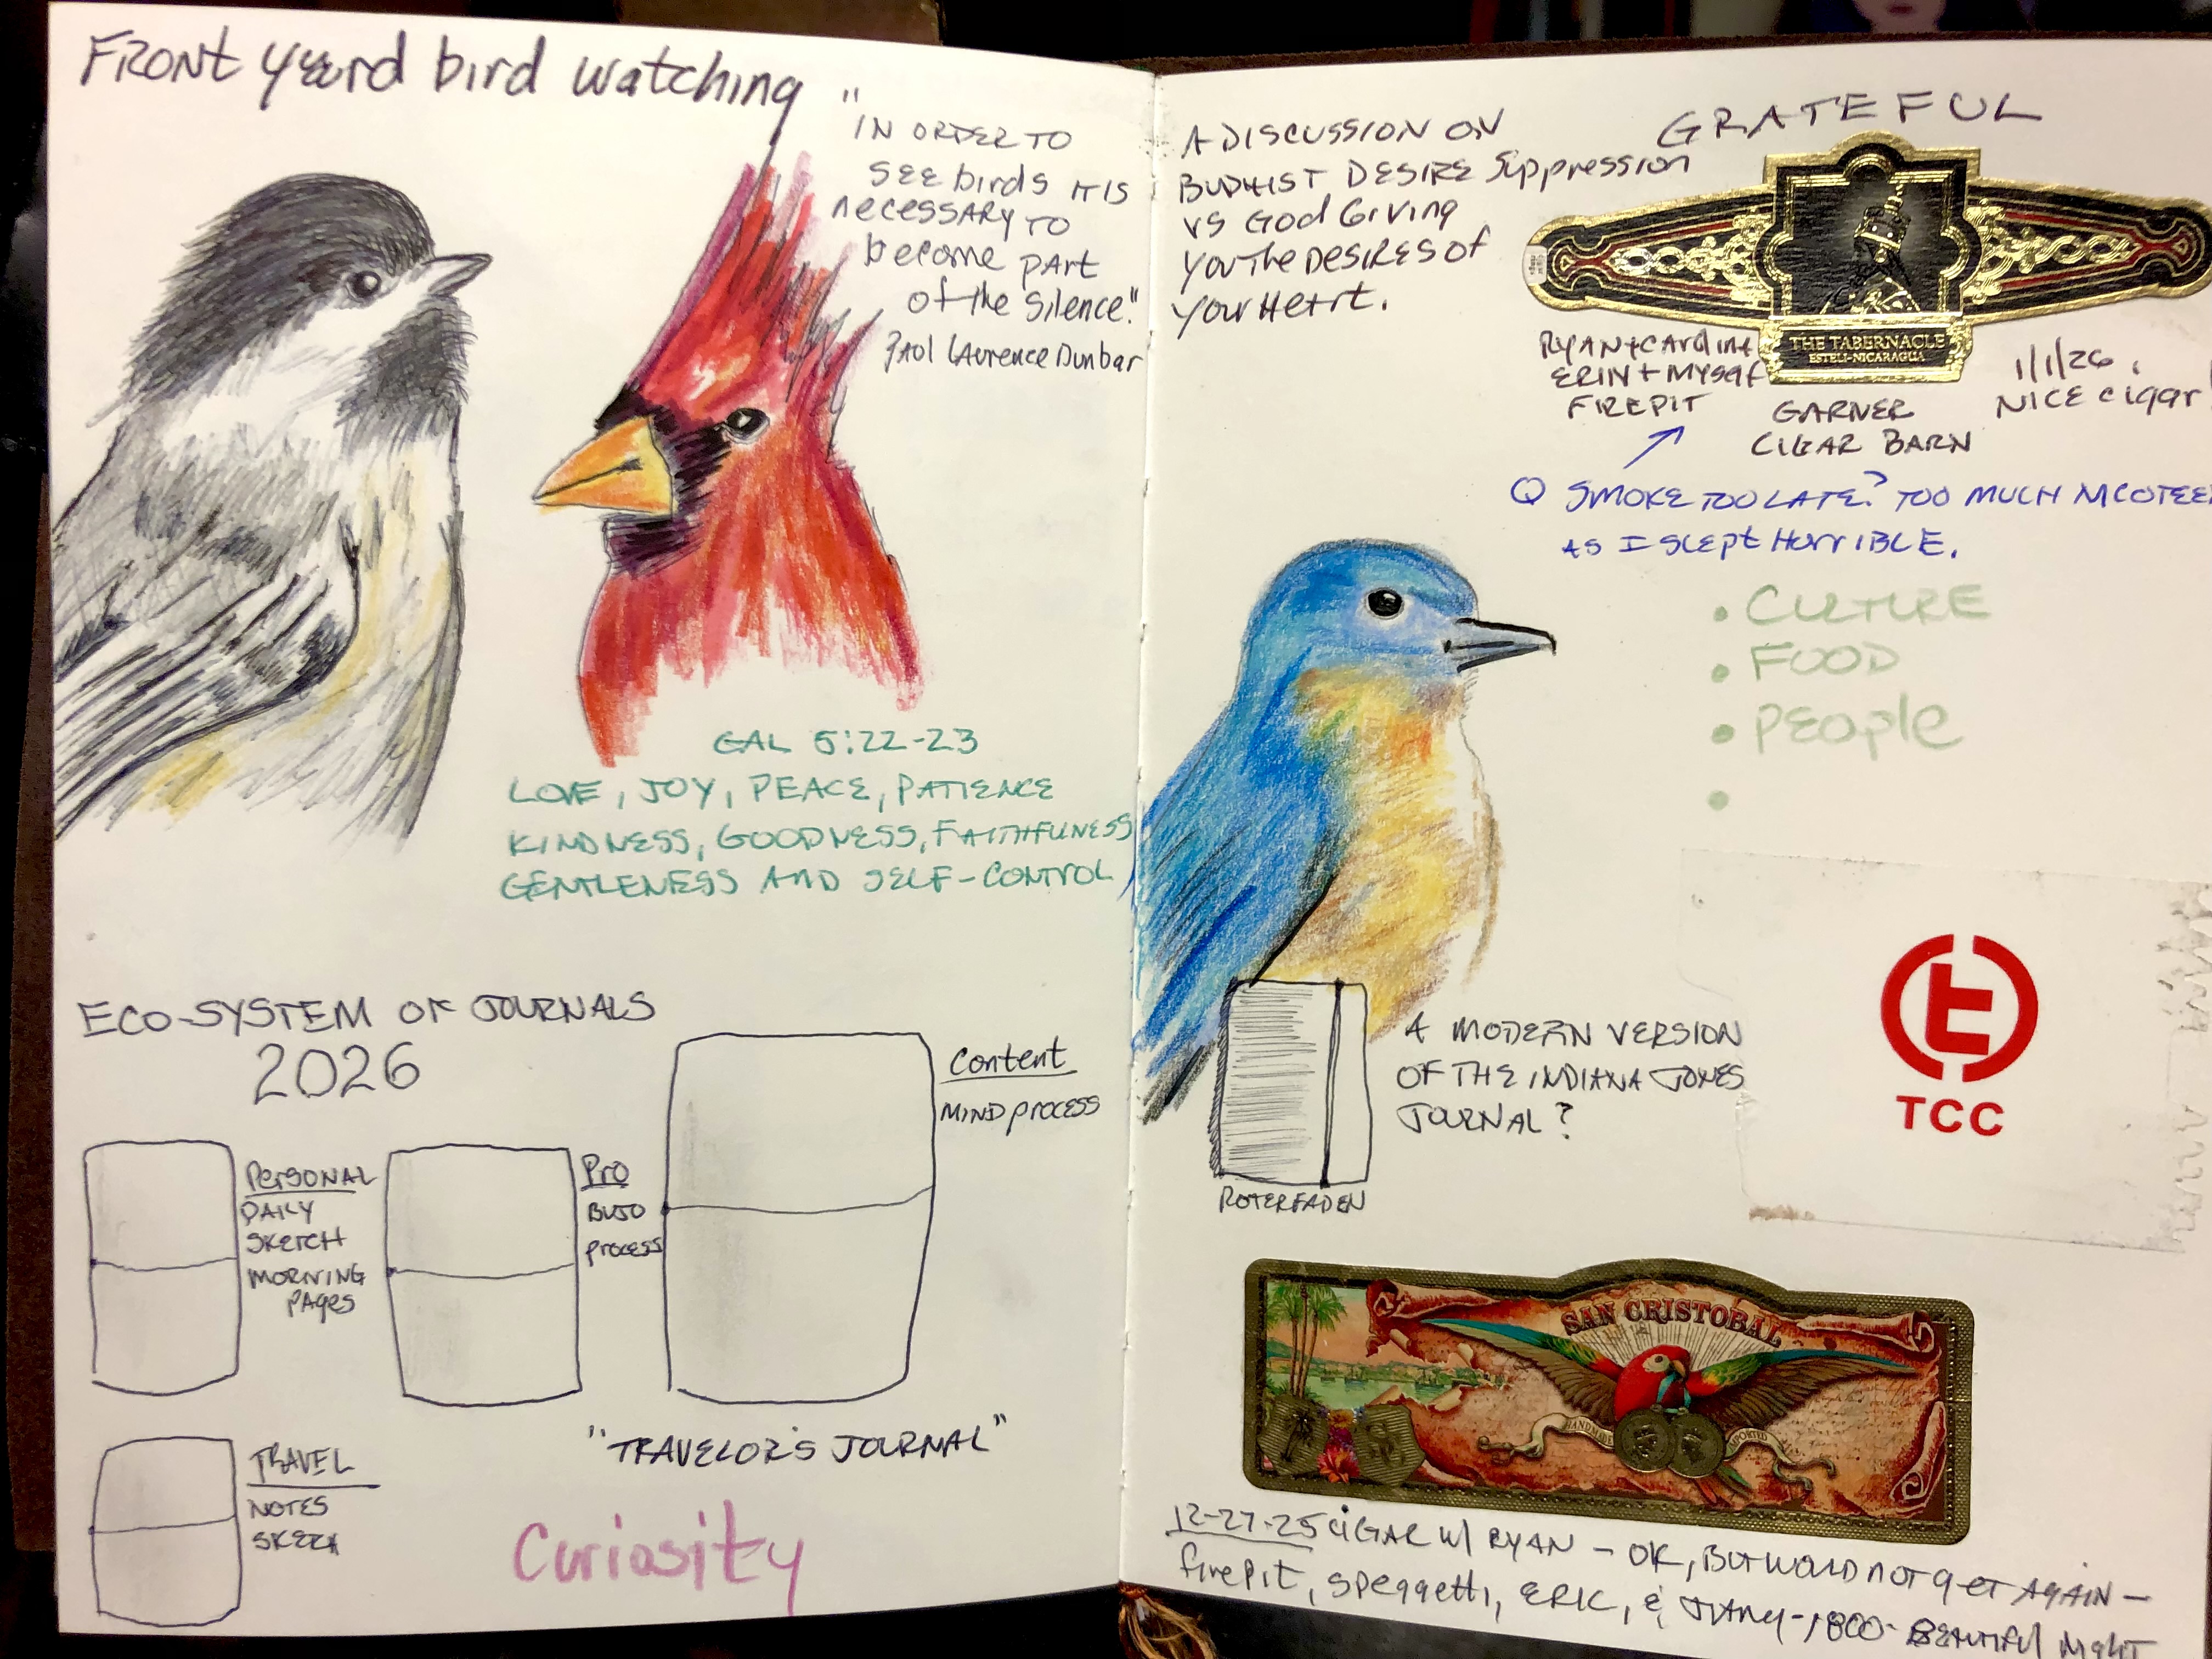 Front yard bird watching
"IN ORDER TO
SEE birds IT IS
necessary TO
become part
of the silence."
Paol Laurence Dunbar
GAL 5:22-23
LOVE, JOY, PEACE, PATIENCE
KINDNESS, GOODNESS, FAITHFULNESS
GENTLENESS AND SELF-CONTROL
ECO-SYSTEM OF JOURNALS
2026
Personal
DAILY
SKETCH
MORNING
PAges
Pro
BUJO
process
Content
MIND process
"TRAVELOR'S JOURNAL"
TRAVEL
NOTES
SKETCH
Curiosity
A DISCUSSION ON
BUDHIST DESIRE Suppression
vs God Giving
You The DESIRES of
Your Heart.
GRATEFUL
THE TABERNACLE
ESTELI-NICARAGUA
RYAN + CAROLINE
ERIN + MYSELF
FIREPIT
GARNER
CIGAR BARN
1/1/26
NICE cigar
Q SMOKE TOO LATE? TOO MUCH NICOTEE
AS I SLEPT HORRIBLE.
• CULTURE
• FOOD
• People
•
TCC
A MODERN VERSION
OF THE INDIANA JONES
JOURNAL?
ROTERFADEN
SAN CRISTOBAL
HANDMADE
IMPORTED
12-27-25 CIGAR W/ RYAN - OK, BUT WOULD NOT GET AGAIN -
firepit, speggetti, ERIC, & - 1800 - BEAUTIFUL Night